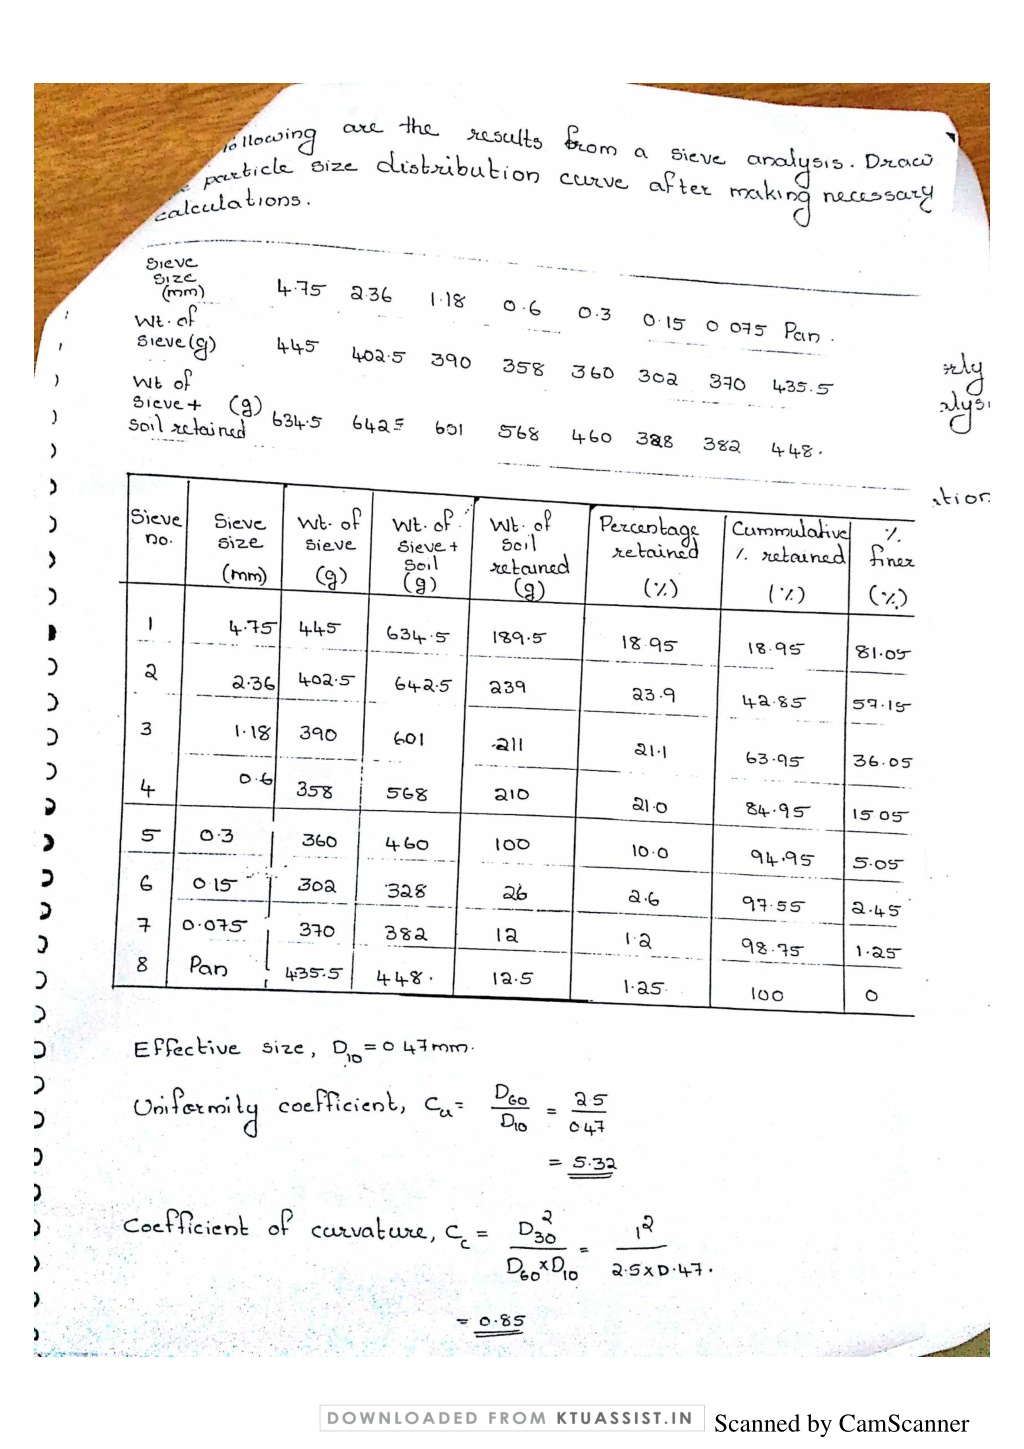 following are the results from a sieve analysis. Draw
particle size distribution curve after making necessary
calculations.
Sieve size (mm) 4.75 2.36 1.18 0.6 0.3 0.15 0.075 Pan.
Wt. of Sieve (g) 445 402.5 390 358 360 302 370 435.5
Wt of Sieve + Soil retained (g) 634.5 642.5 601 568 460 328 382 448.
Sieve no. Sieve size (mm) Wt. of sieve (g) Wt. of sieve + soil (g) Wt. of soil retained (g) Percentage retained (%) Cummulative % retained (%) % finer (%)
1 4.75 445 634.5 189.5 18.95 18.95 81.05
2 2.36 402.5 642.5 239 23.9 42.85 57.15
3 1.18 390 601 211 21.1 63.95 36.05
4 0.6 358 568 210 21.0 84.95 15.05
5 0.3 360 460 100 10.0 94.95 5.05
6 0.15 302 328 26 2.6 97.55 2.45
7 0.075 370 382 12 1.2 98.75 1.25
8 Pan 435.5 448. 12.5 1.25 100 0
Effective size, D10 = 0.47mm.
Uniformity coefficient, Cu = D60/D10 = 2.5/0.47
= 5.32
Coefficient of curvature, Cc = D30²/D60×D10 = 1²/2.5×0.47.
= 0.85
DOWNLOADED FROM KTUASSIST.IN
Scanned by CamScanner